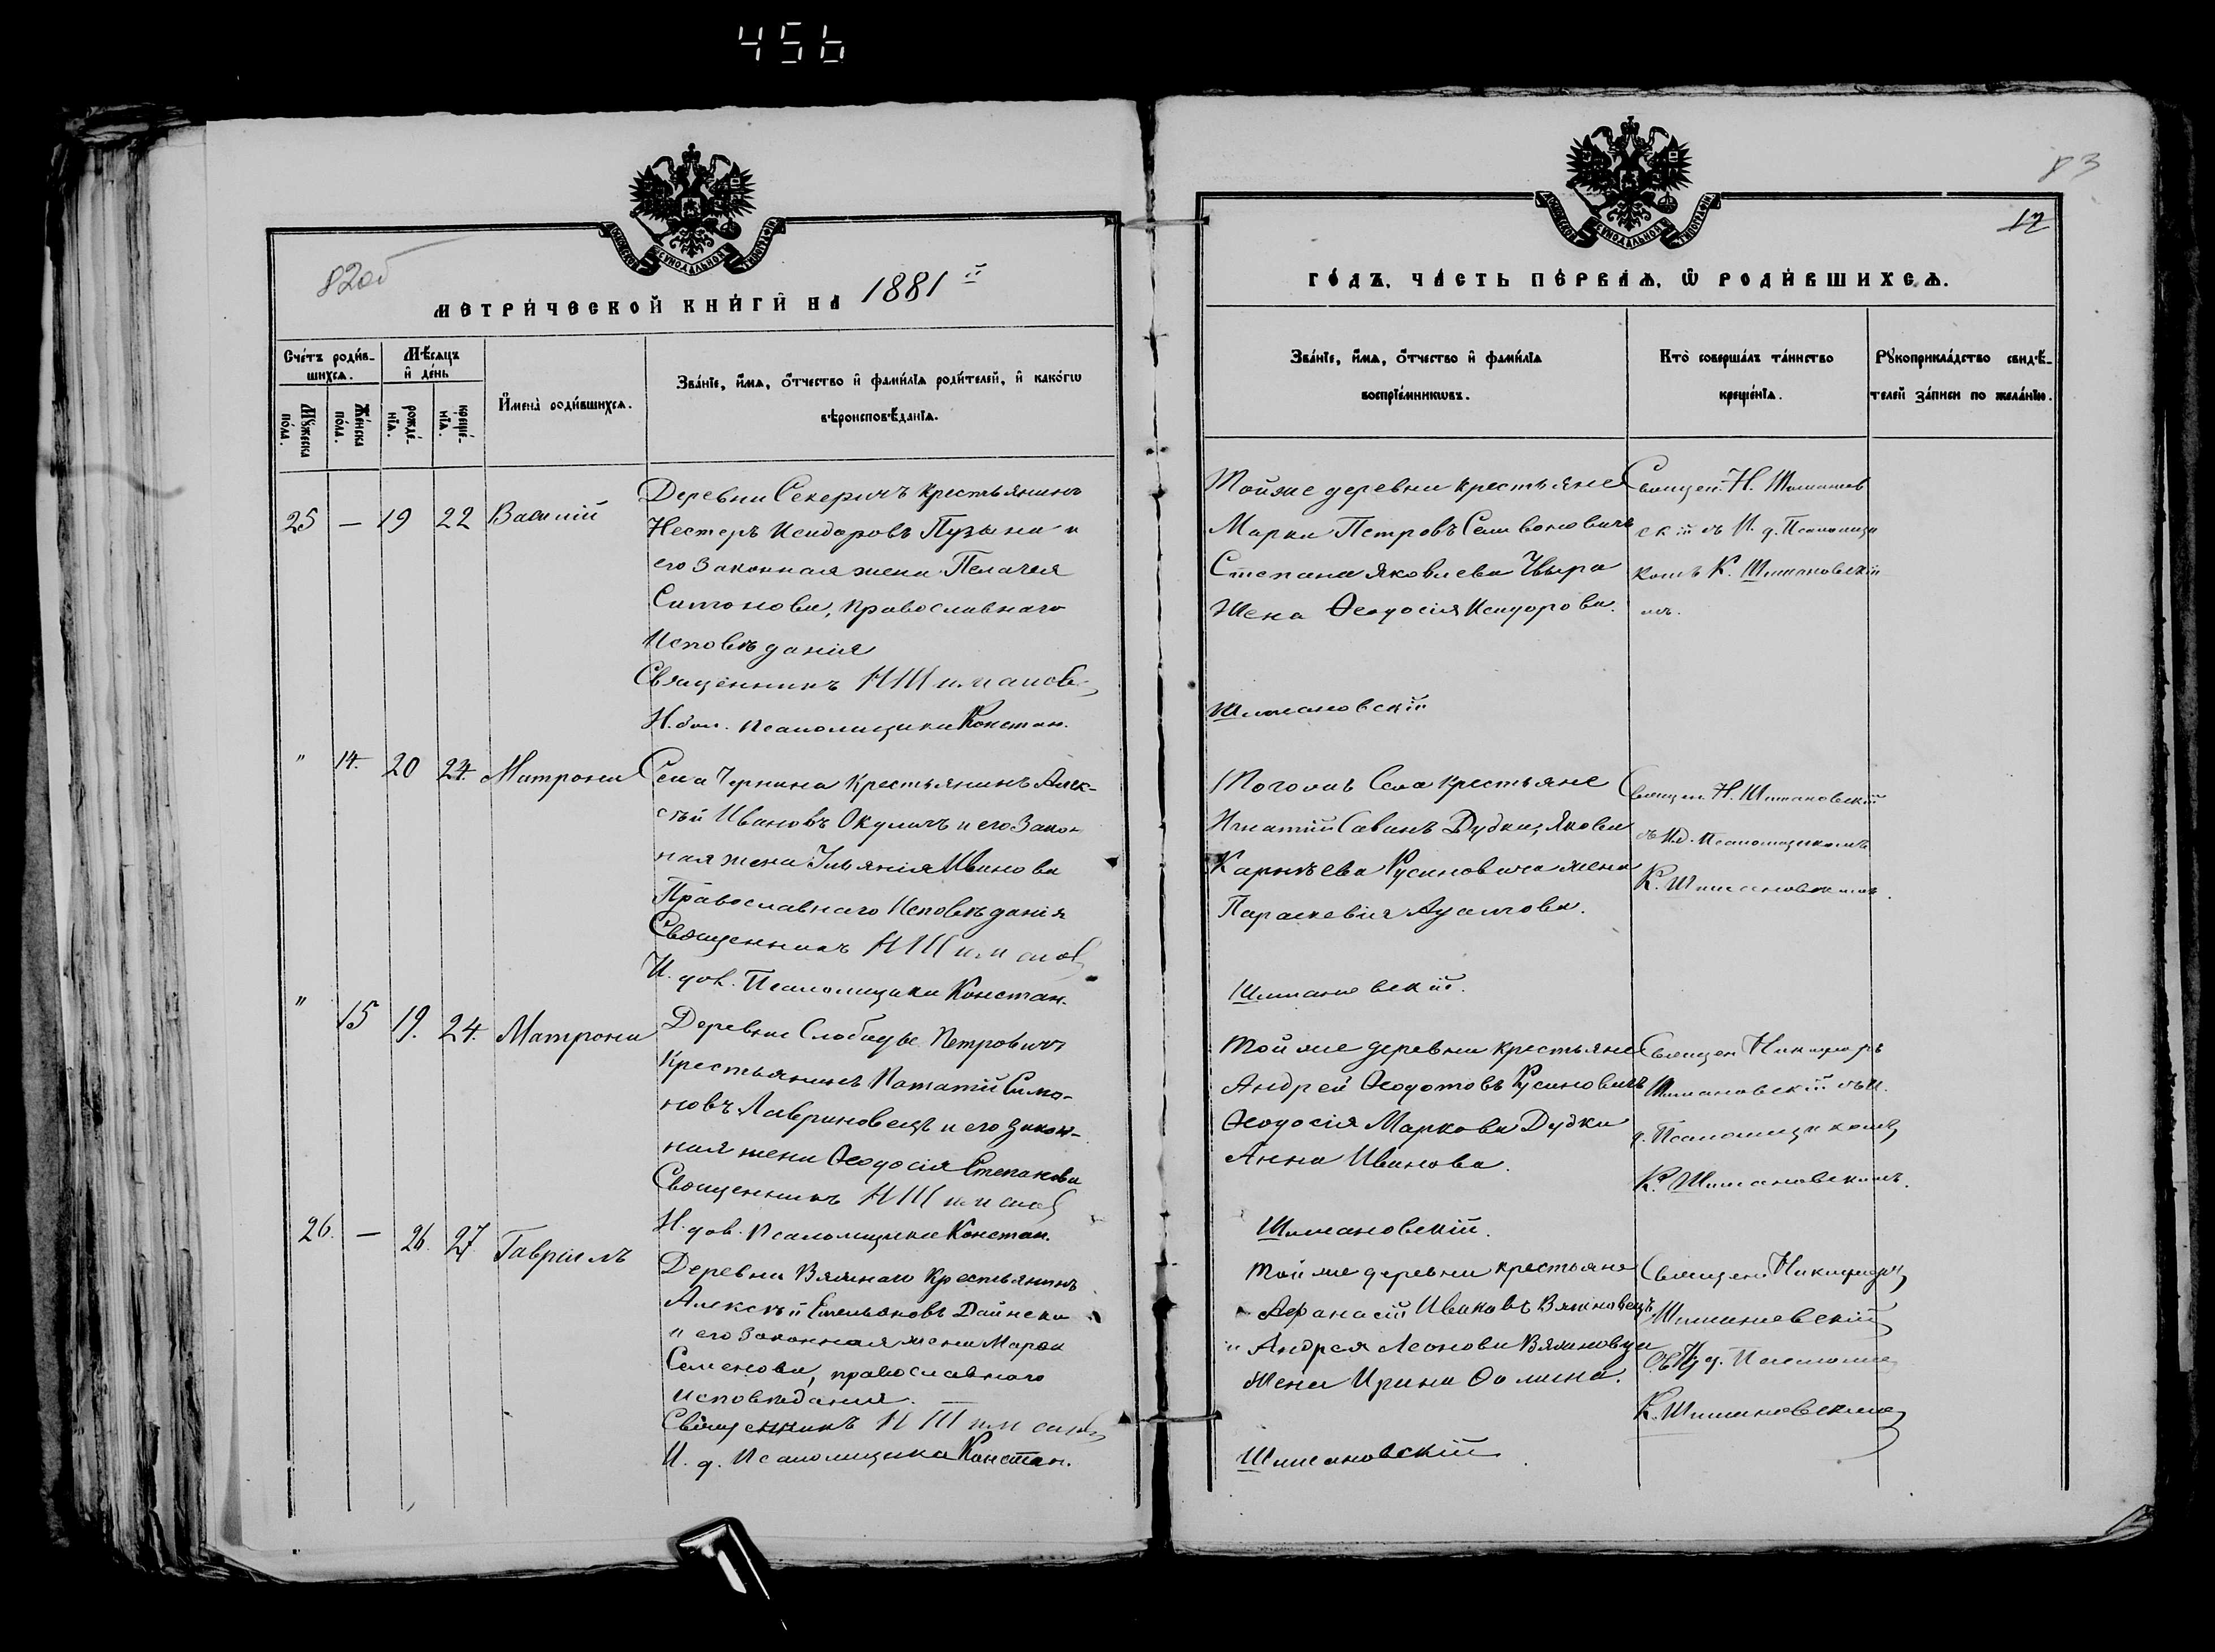 456
82об
83
12
МЕТРИ́ЧЕСКОЙ КНИ́ГИ НА 1881 й
ГО́ДЪ, ЧА́СТЬ ПЕ́РВАѦ, Ѡ РОДИ́ВШИХСѦ.
Сче́тъ роди́вшихсѧ.
Мꙋ́жеска по́ла.
Же́нска по́ла.
Мѣ́сѧцъ и҆ день
рожде́нїѧ.
креще́нїѧ.
И҆мена̀ роди́вшихсѧ.
Зва́нїе, и҆́мѧ, ѻ҆́тчество и҆ фами́лїѧ роди́телей, и҆ како́гѡ
вѣроисповѣ́данїѧ.
Зва́нїе, и҆́мѧ, ѻ҆́тчество и҆ фами́лїѧ
воспрїе́мникѡвъ.
Кто̀ соверша́лъ та́инство
креще́нїѧ.
Рꙋкоприкла́дство свидѣ́-
телей за́писи по жела́нїю.
25 — 19 22 Василій
Деревни Секеричъ крестьянинъ
Нестеръ Исидоровъ Пузына и
его законная жена Пелагея
Симонова, православнаго
Исповѣданія
Священникъ Н Шиманов
Псаломщика Констан.
Тойже деревни крестьяне
Марка Петровъ Селивоновичъ
Степана Яковлева Чвыра
жена Ѳеодосія Исидорова.
Шимановскій
Священ. Н. Шиманов
скій съ И. д. Псаломщи
комъ К. Шимановскі
мъ.
" 14. 20 24. Матрона
Села Чернина Крестьянинъ Алек-
сѣй Ивановъ Окуличъ и его закон
ная жена Ульянія Иванова
Православнаго Исповѣданія
Священникъ Н Шиманов
И. дол. Псаломщика Констан.
Тогожъ Села крестьяне
Игнатій Савинъ Дудка, Якова
Карнѣева Русиновича жена
Параскевія Адамова.
Шимановскій.
Священ. Н. Шимановскій
съ И.д. Псаломщикомъ
К. Шимановскимъ.
" 15 19. 24. Матрона
Деревни Слободы Петровичъ
Крестьянинъ Потапій Симо-
новъ Лавриновецъ и его закон-
ная жена Ѳеодосія Степанова
Священникъ Н Шиманов
И. дол. Псаломщика Констан.
Той же деревни крестьяне
Андрей Ѳеодотовъ Русиновичъ
Ѳеодосія Маркова Дудки
Анна Иванова.
Шимановскій.
Священ Никифоръ
Шимановскій съ И.
д. Псаломщикомъ
К. Шимановскимъ.
26. — 26. 27. Гавріилъ
Деревни Вялнаго Крестьянинъ
Алексѣй Емельяновъ Дайнека
и его законная жена
Семенова, православнаго
исповѣданія.
Священникъ Н Шиманов
И. д. Псаломщика Констан.
Той же деревни крестьяне
Аѳанасій Ивановъ
и Андрея Леонова
жена Ирина
Шимановскій
Священ Никифоръ
Шимановскій
съ И д. Псаломщ
К. Шимановскимъ